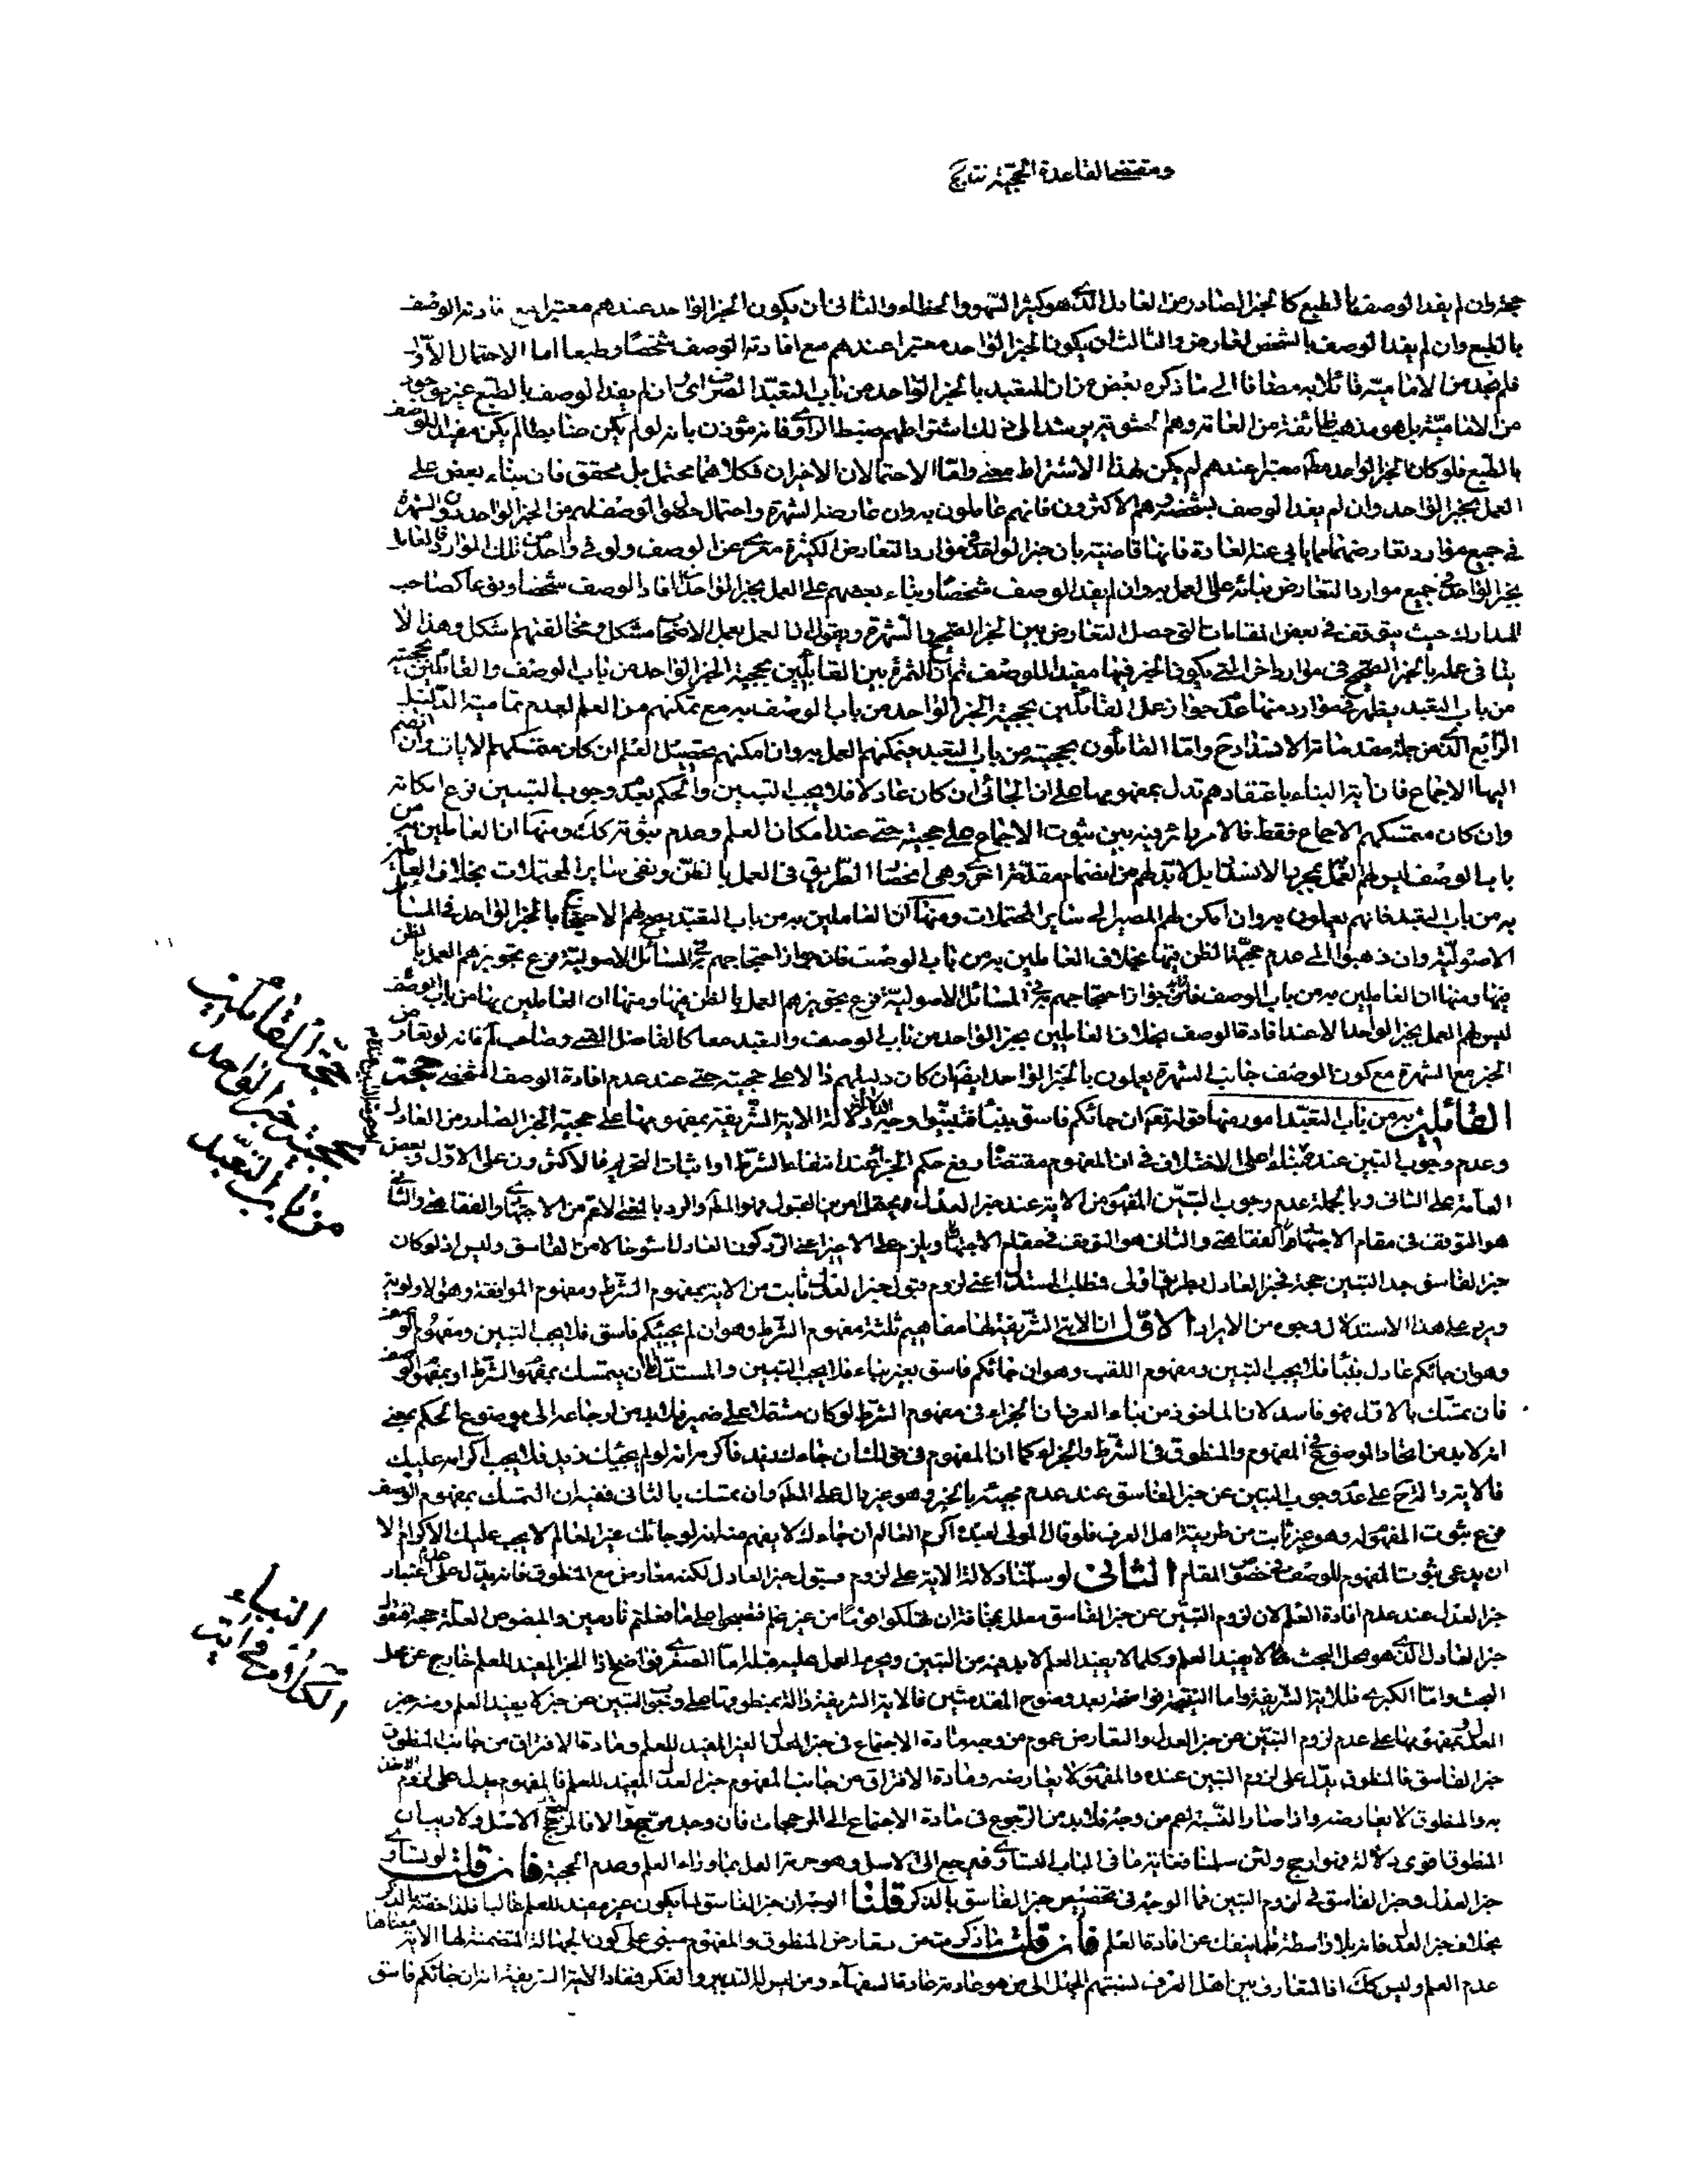 ومقتضى القاعدة الحجية نتايج
حجة وان لم يفد الوصف بالطبع كالخبر الصادر من العادل الذى هو كثير السهو والخطاء والثانى ان يكون الخبر الواحد عندهم معتبرا مع افادته الوصف
بالطبع وان لم يفد الوصف بالشخص لعارض والثالث ان يكون الخبر الواحد معتبرا عندهم مع افادته الوصف شخصا وطبعا اما الاحتمال الاول
فلم نجد من الامامية قائلا به مضافا الى ما ذكره بعض من ان التعبد بالخبر الواحد من باب التعبد الصرف اى وان لم يفد الوصف بالطبع غير موجود
من الامامية بل هو مذهب طائفة من العامة وهم الحشوية يرشد الى ذلك اشتراطهم ضبط الراوى فانه مؤذن بانه لو لم يكن ضابطا لم يكن مفيدا للوصف
بالطبع فلو كان الخبر الواحد مط معتبرا عندهم لم يكن لهذا الاشتراط معنى واما الاحتمالان الاخيران فكلاهما محتمل بل محقق فان بناء بعض على
العمل بخبر الواحد وان لم يفد الوصف بشخصه وهم الاكثرون فانهم عاملون به وان عارضه الشهرة واحتمال حصول الوصف لهم من الخبر الواحد دون الشهرة
فى جميع موارد تعارضهما مما يابى عنه العادة فانها قاضية بان خبر الواحد فى موارد التعارض الكثيرة معرى عن الوصف ولو فى واحد من تلك الموارد فالعامل
بخبر الواحد فى جميع موارد التعارض بنائه على العمل به وان لم يفد الوصف شخصا وبناء بعضهم على العمل بخبر الواحد اذا افاد الوصف شخصا ونوعا كصاحب
المدارك حيث يتوقف فى بعض المقامات التى حصل التعارض بين الخبر الصحيح والشهرة ويقول ان العمل بعمل الاصحاب مشكل ومخالفتهم مشكل وهذا لا
ينافى عمله بالخبر الصحيح فى موارد اخر التى يكون الخبر فيها مفيدا للوصف ثم ان الثمرة بين القائلين بحجية الخبر الواحد من باب الوصف والقائلين بحجيته
من باب التعبد يظهر فى موارد منها عدم جواز عمل القائلين بحجية الخبر الواحد من باب الوصف به مع تمكنهم من العلم لعدم تمامية الدليل
الرابع الذى من جملة مقدماته الانسداد ح واما القائلون بحجيته من باب التعبد فيمكنهم العمل به وان امكنهم تحصيل العلم ان كان متمسكهم الايات وان انضم
اليها الاجماع فان اية النباء باعتقادهم تدل بمفهومها على ان الجائى ان كان عادلا فلا يجب التبين والحكم بعدم وجوب التبين فرع امكانه
وان كان متمسكهم الاجماع فقط فالامر دائر فيه بين ثبوت الاجماع على حجيته حتى عند امكان العلم وعدم ثبوته كك ومنها ان العاملين به من
باب الوصف ليس لهم العمل بمجرد الانسداد بل لابد لهم من انضمام مقدمة اخرى وهى انحصار الطريق فى العمل بالظن ونفى ساير المحتملات بخلاف العاملين
به من باب التعبد فانهم يعملون به وان امكن لهم المصير الى ساير المحتملات ومنها ان العاملين به من باب التعبد يصح لهم الاحتجاج بالخبر الواحد فى المسائل
الاصولية وان ذهبوا الى عدم حجية الظن فيها بخلاف العاملين به من باب الوصف فان جواز احتجاجهم به فى المسائل الاصولية فرع تجويزهم العمل بالظن
فيها ومنها ان العاملين به من باب الوصف فان جواز احتجاجهم به فى المسائل الاصولية فرع تجويزهم العمل بالظن فيها ومنها ان العاملين بها من باب الوصف
ليس لهم العمل بخبر الواحد الا عند افادة الوصف بخلاف العاملين بخبر الواحد من باب الوصف والتعبد معا كالفاضل القمى وصاحب لم فانه لو تعارض
الخبر مع الشهرة مع كون الوصف جانب الشهرة يعملون بالخبر الواحد ايضا ان كان دليلهم دالا على حجيته حتى عند عدم افادة الوصف الشخصى حجت
القائلين به من باب التعبد امور منها قوله تعالى ان جائكم فاسق بنبأ فتبينوا وجه الدلالة دلالة الاية الشريفة بمفهومها على حجية الخبر الصادر من العادل
وعدم وجوب التبين عند نبائه على الاختلاف فى ان المفهوم مقتضاه رفع حكم الجزاء عند انتفاء الشرط او اثبات التحريم فالاكثرون على الاول وبعض
العامة على الثانى وبالجملة عدم وجوب التبين المفهوم من الاية عند خبر العدل محتمل امرين القبول فهو المط والرد بالمعنى الاعم من الاجتهادى والفقاهتى والثانى
هو التوقف فى مقام الاجتهاد والفقاهتى والثانى هو التوقف فى مقام الاجتهاد ويلزم على الاخير اعنى الرد كون العادل اسوء حالا من الفاسق وليس اذ لو كان
خبر الفاسق بعد التبين حجة فخبر العادل بطريق اولى فمطلب المستدل اعنى لزوم قبول خبر العدل ثابت من الاية بمفهوم الشرط ومفهوم الموافقة وهو الاولوية
ويرد على هذا الاستدلال وجوه من الايراد الاول ان الاية الشريفة لها مفاهيم ثلثة مفهوم الشرط وهو ان لم يجئكم فاسق فلا يجب التبين ومفهوم الوصف
وهو ان جائكم عادل بنبأ فلا يجب التبين ومفهوم اللقب وهو ان جائكم فاسق بغير نباء فلا يجب التبين والمستدل اما ان يتمسك بمفهوم الشرط او بمفهوم الوصف
فان تمسك بالاول فهو فاسد لان الماخوذ من بناء العرف ان الجزاء فى مفهوم الشرط لو كان مشتملا على ضمير فلابد من ارجاعه الى موضوع الحكم بمعنى
انه لابد من اتحاد الموضوع فى المفهوم والمنطوق فى الشرط والجزاء كما ان المفهوم فى قولك ان جاءك زيد فاكرمه انه لو لم يجئك زيد فلا يجب اكرامه عليك
فالاية دالة ح على عدم وجوب التبين عن خبر الفاسق عند عدم مجيئه بالخبر وهو غير دال على المط وان تمسك بالثانى ففيه ان التمسك بمفهوم الوصف
فرع ثبوت المفهوم له وهو غير ثابت من طريقة اهل العرف فلو قال المولى لعبده اكرم العالم ان جاءك لا يفهم منه انه لو جائك غير العالم لا يجب عليك الاكرام الا
ان يدعى ثبوت المفهوم للوصف فى خصوص المقام الثانى لو سلمنا دلالة الاية على لزوم قبول خبر العادل لكنه معارض مع المنطوق فانه يدل على عدم اعتبار
خبر العدل عند عدم افادة العلم لان لزوم التبين عن خبر الفاسق معلل بمخافة ان تهلكوا قوما من غير علم فتصبحوا على ما فعلتم نادمين والمنصوص العلة حجة فنقول
خبر العادل الذى هو محل البحث مما لا يفيد العلم وكلما لا يفيد العلم لابد فيه من التبين ويحرم العمل عليه قبله اما الصغرى فواضح اذ الخبر المفيد للعلم خارج عن محل
البحث واما الكبرى فللاية الشريفة واما النتيجة فواضحة بعد وضوح المقدمتين فالاية الشريفة دالة بمنطوقها على وجوب التبين عن خبر لا يفيد العلم ومنه خبر
العدل وبمفهومها على عدم لزوم التبين عن خبر العدل والتعارض عموم من وجه مادة الاجتماع فى خبر العدل الغير المفيد للعلم ومادة الافتراق من جانب المنطوق
خبر الفاسق فالمنطوق يدل على لزوم التبين عنده والمفهوم لا يعارضه ومادة الافتراق من جانب المفهوم خبر العدل المفيد للعلم فالمفهوم يدل على لزوم الاخذ
به والمنطوق لا يعارضه واذا صار النسبة اعم من وجه فلابد من الرجوع فى مادة الاجتماع الى المرجحات فان وجد مرجح والا فالمرجع الاصل ولا ريب ان
المنطوق اقوى دلالة فهو ارجح ولئن سلمنا فغاية ما فى الباب التساوى فيرجع الى الاصل وهو حرمة العمل بما وراء العلم وعدم الحجية فان قلت لو تساوى
خبر العدل وخبر الفاسق فى لزوم التبين فما الوجه فى تخصيص خبر الفاسق بالذكر قلنا الوجه ان خبر الفاسق لما يكون غير مفيد للعلم غالبا فلذا خصه بالذكر
بخلاف خبر العدل فانه بلا واسطة قلما ينفك عن افادة العلم فان قلت ما ذكرته من تعارض المنطوق والمفهوم مبنى على كون الجهالة المتضمنة لها الاية معناها
عدم العلم وليس كك اذ المتعارف بين اهل العرف نسبتهم الجهل الى من هو عادته عادة السفهاء ومن ليس له التدبير والفكر فمفاد الاية الشريفة ان ان جائكم فاسق
حجة القائلين
بحجية خبر الواحد
من باب التعبد
الكلام فى اية
النباء